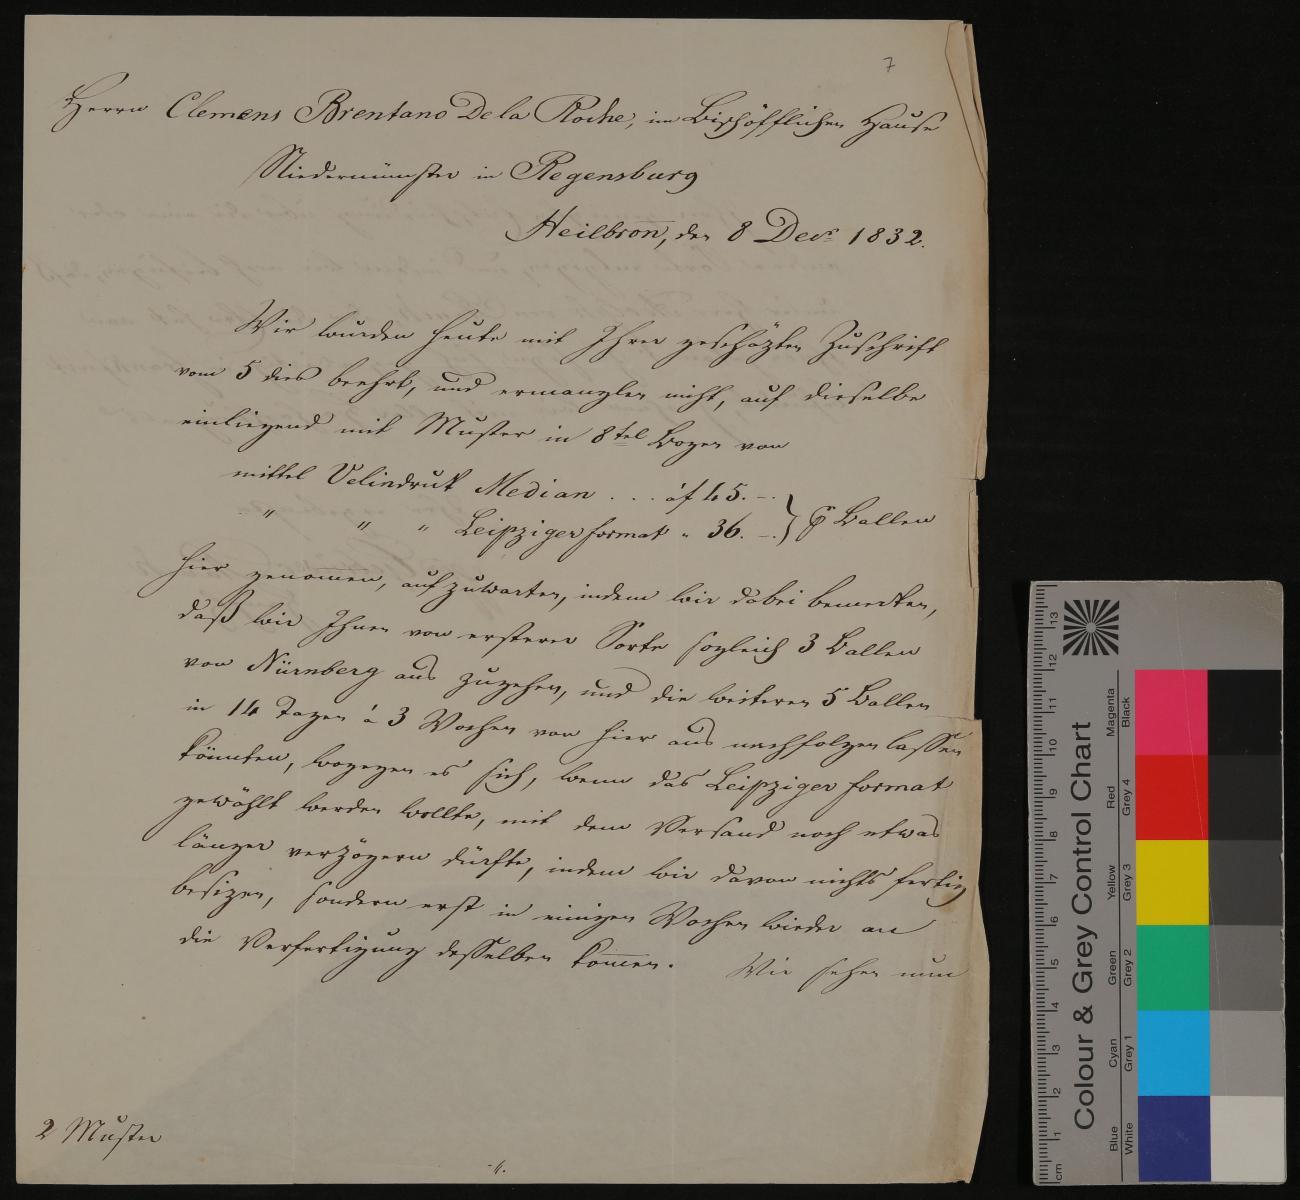 7
Herrn Clemens Brentano De la Roche, im Bischöfflichen Hause
Niedermünster in Regensburg
Heilbron̅, den 8 Decr 1832.
Wir wurden heute mit Ihrer geschäzten Zuschrift
vom 5 dies beehrt, und ermanglen nicht, auf dieselbe
einliegend mit Muster in 8tel Bogen von
mittel Velindruk Median . . . á f 45. –.
" " " Leipziger format " 36. –. } ꝑ Ballen
hier genom̅en, aufzuwarten, indem wir dabei bemerken,
daß wir Ihnen von ersterer Sorte sogleich 3 Ballen
von Nürnberg aus zugehen, und die weiteren 5 Ballen
in 14 Tagen á 3 Wochen von hier aus nachfolgen lassen
könnten, wogegen es sich, wenn das Leipziger format
gewählt werden wollte, mit dem Versand noch etwas
länger verzögern dürfte, indem wir davon nichts fertig
besizen, sondern erst in einigen Wochen wieder an
die Verfertigung desselben kom̅en. Wir sehen nun
2 Muster
-//.
Colour & Grey Control Chart
Blue Cyan Green Yellow Red Magenta
White Grey 1 Grey 2 Grey 3 Grey 4 Black
cm 1 2 3 4 5 6 7 8 9 10 11 12 13